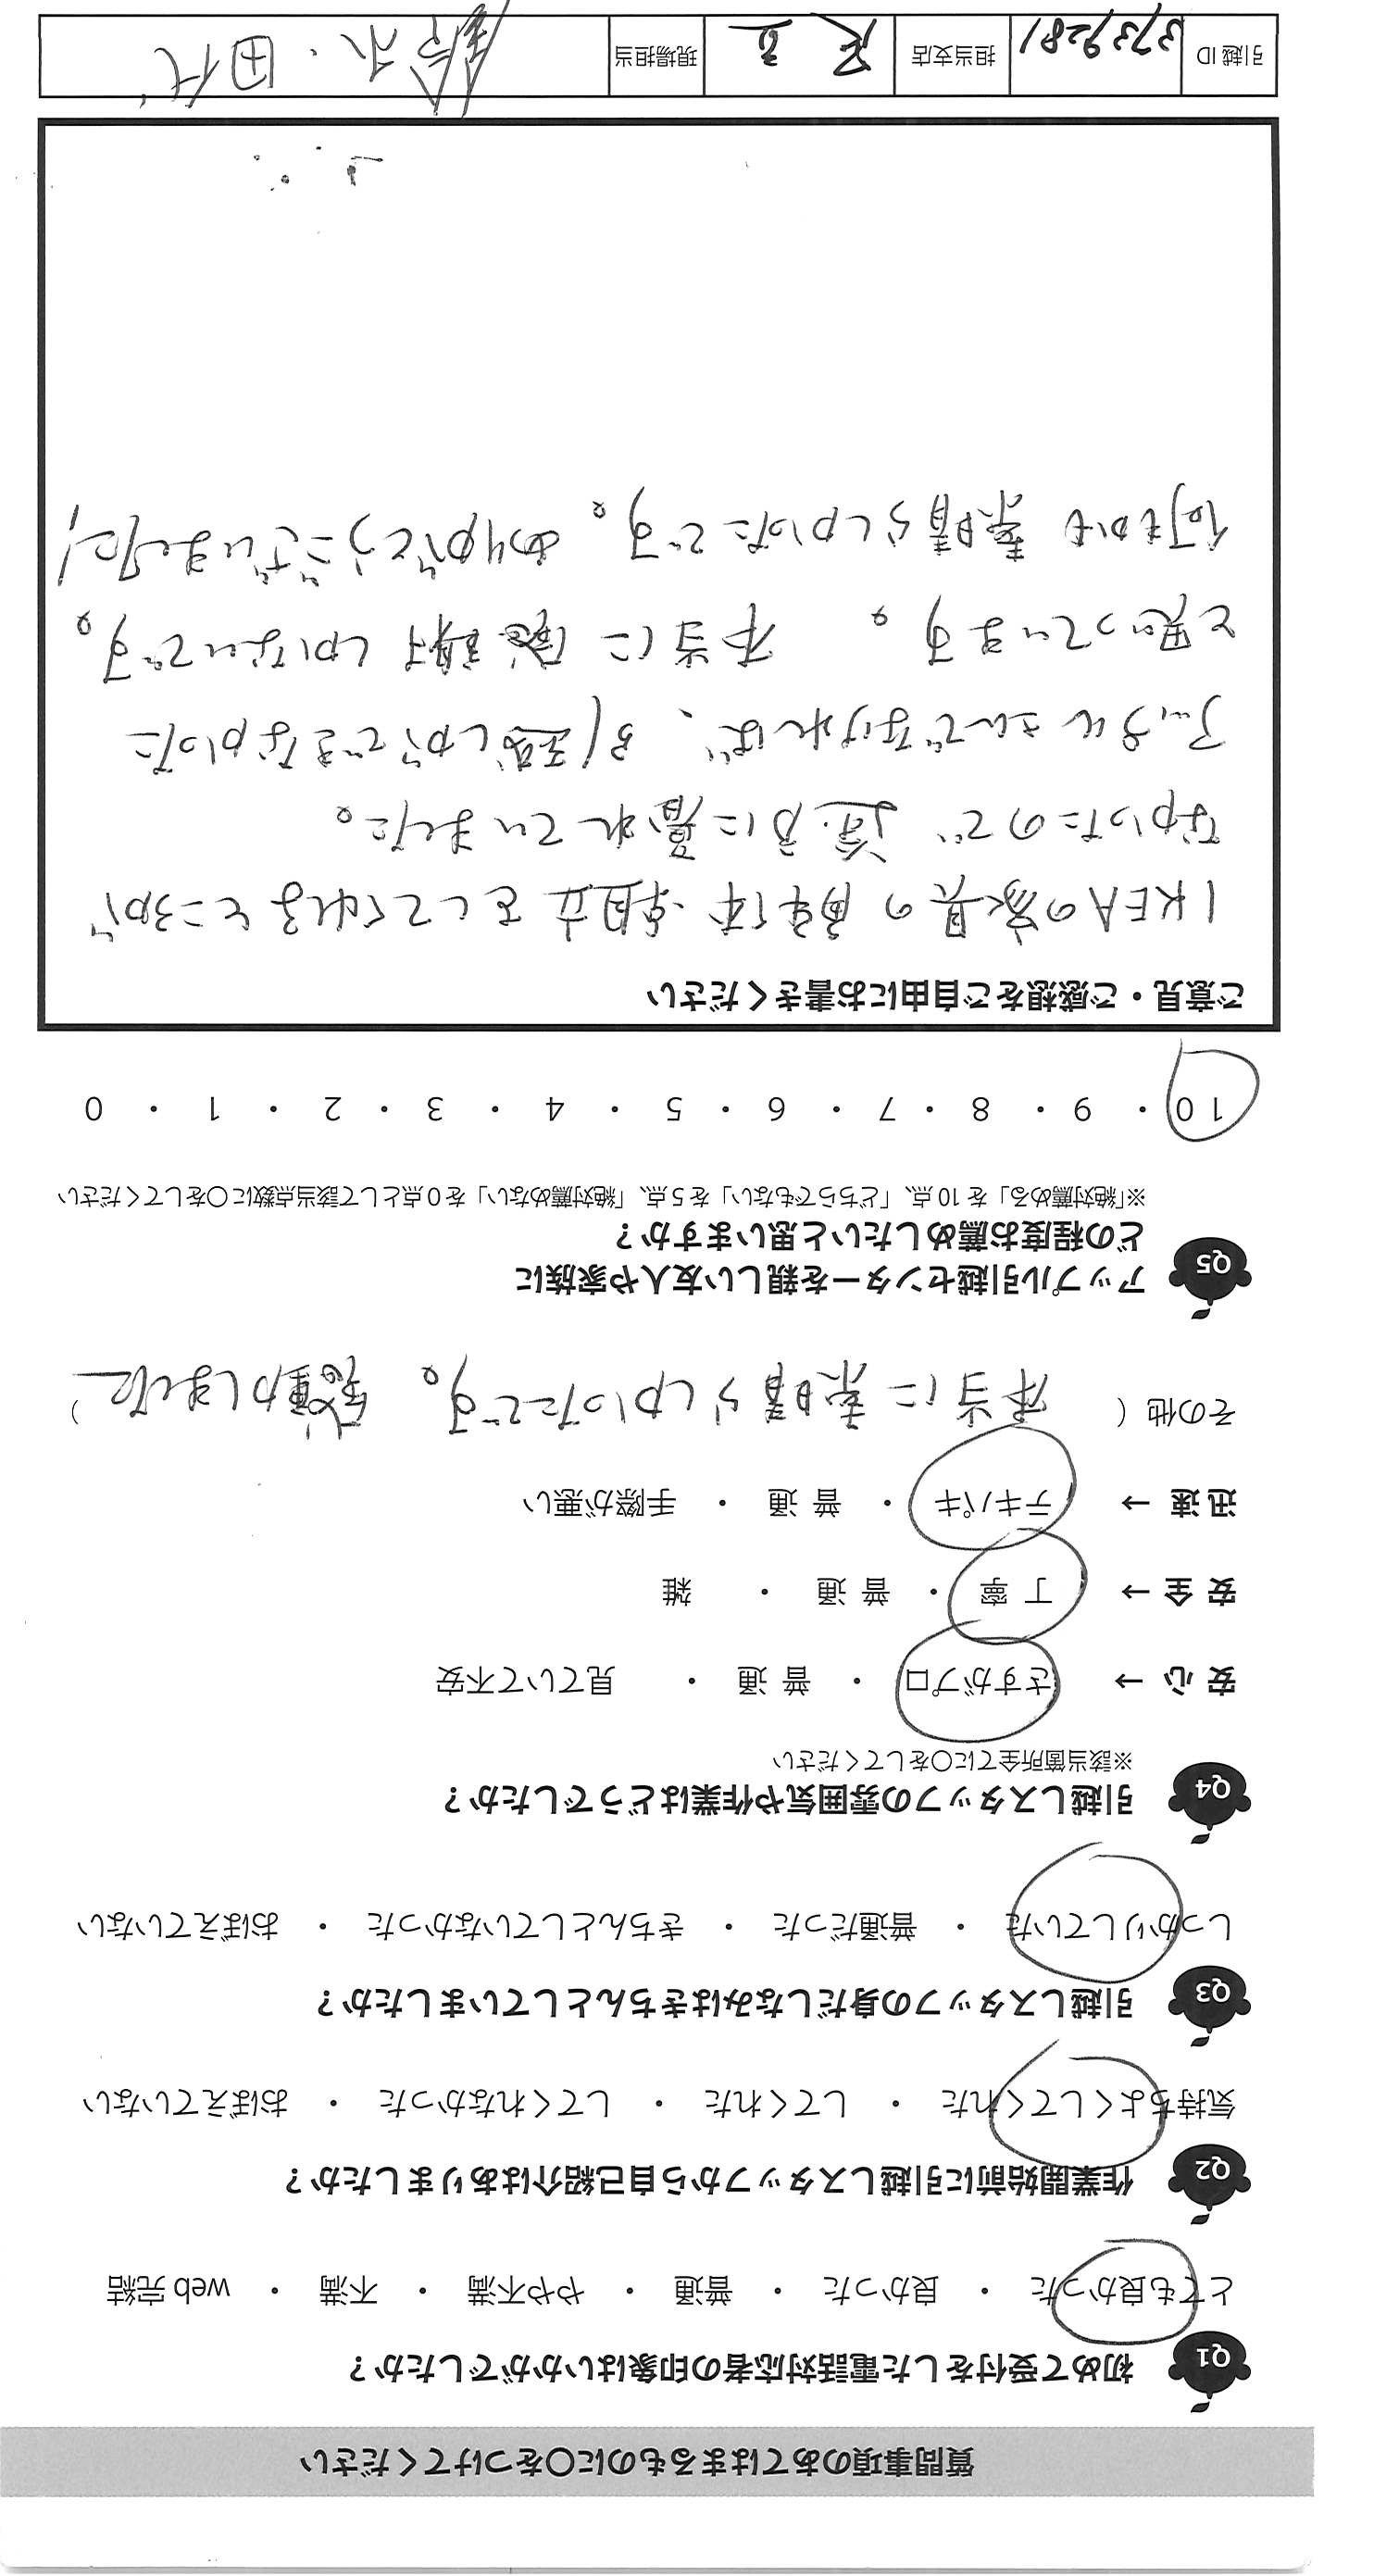 質問事項のあてはまるものに○をつけてください
Q1 初めて受付をした電話対応者の印象はいかがでしたか？
とても良かった ・ 良かった ・ 普通 ・ やや不満 ・ 不満 ・ web 完結
Q2 作業開始前に引越しスタッフから自己紹介はありましたか？
気持ちよくしてくれた ・ してくれた ・ してくれなかった ・ おぼえていない
Q3 引越しスタッフの身だしなみはきちんとしていましたか？
しっかりしていた ・ 普通だった ・ きちんとしていなかった ・ おぼえていない
Q4 引越しスタッフの雰囲気や作業はどうでしたか？
※該当箇所全てに○をしてください
安 心 → さすがプロ ・ 普 通 ・ 見ていて不安
安 全 → 丁 寧 ・ 普 通 ・ 雑
迅 速 → テキパキ ・ 普 通 ・ 手際が悪い
その他（ 本当に素晴らしかったです。 感動しました ）
Q5 アップル引越センターを親しい友人や家族に
どの程度お薦めしたいと思いますか？
※「絶対薦める」を 10 点、「どちらでもない」を 5 点、「絶対薦めない」を 0 点として該当点数に○をしてください
10 ・ 9 ・ 8 ・ 7 ・ 6 ・ 5 ・ 4 ・ 3 ・ 2 ・ 1 ・ 0
ご意見・ご感想をご自由にお書きください
IKEAの家具の解体・組立をしてくれるところが
なかったので 途方に暮れていました。
アップルさんでなければ、引越しができなかった
と思っています。 本当に感謝しかないです。
何もかも 素晴らしかったです。ありがとうございました！
引越 ID 3739281 担当支店 足立 現場担当 鈴木・田代